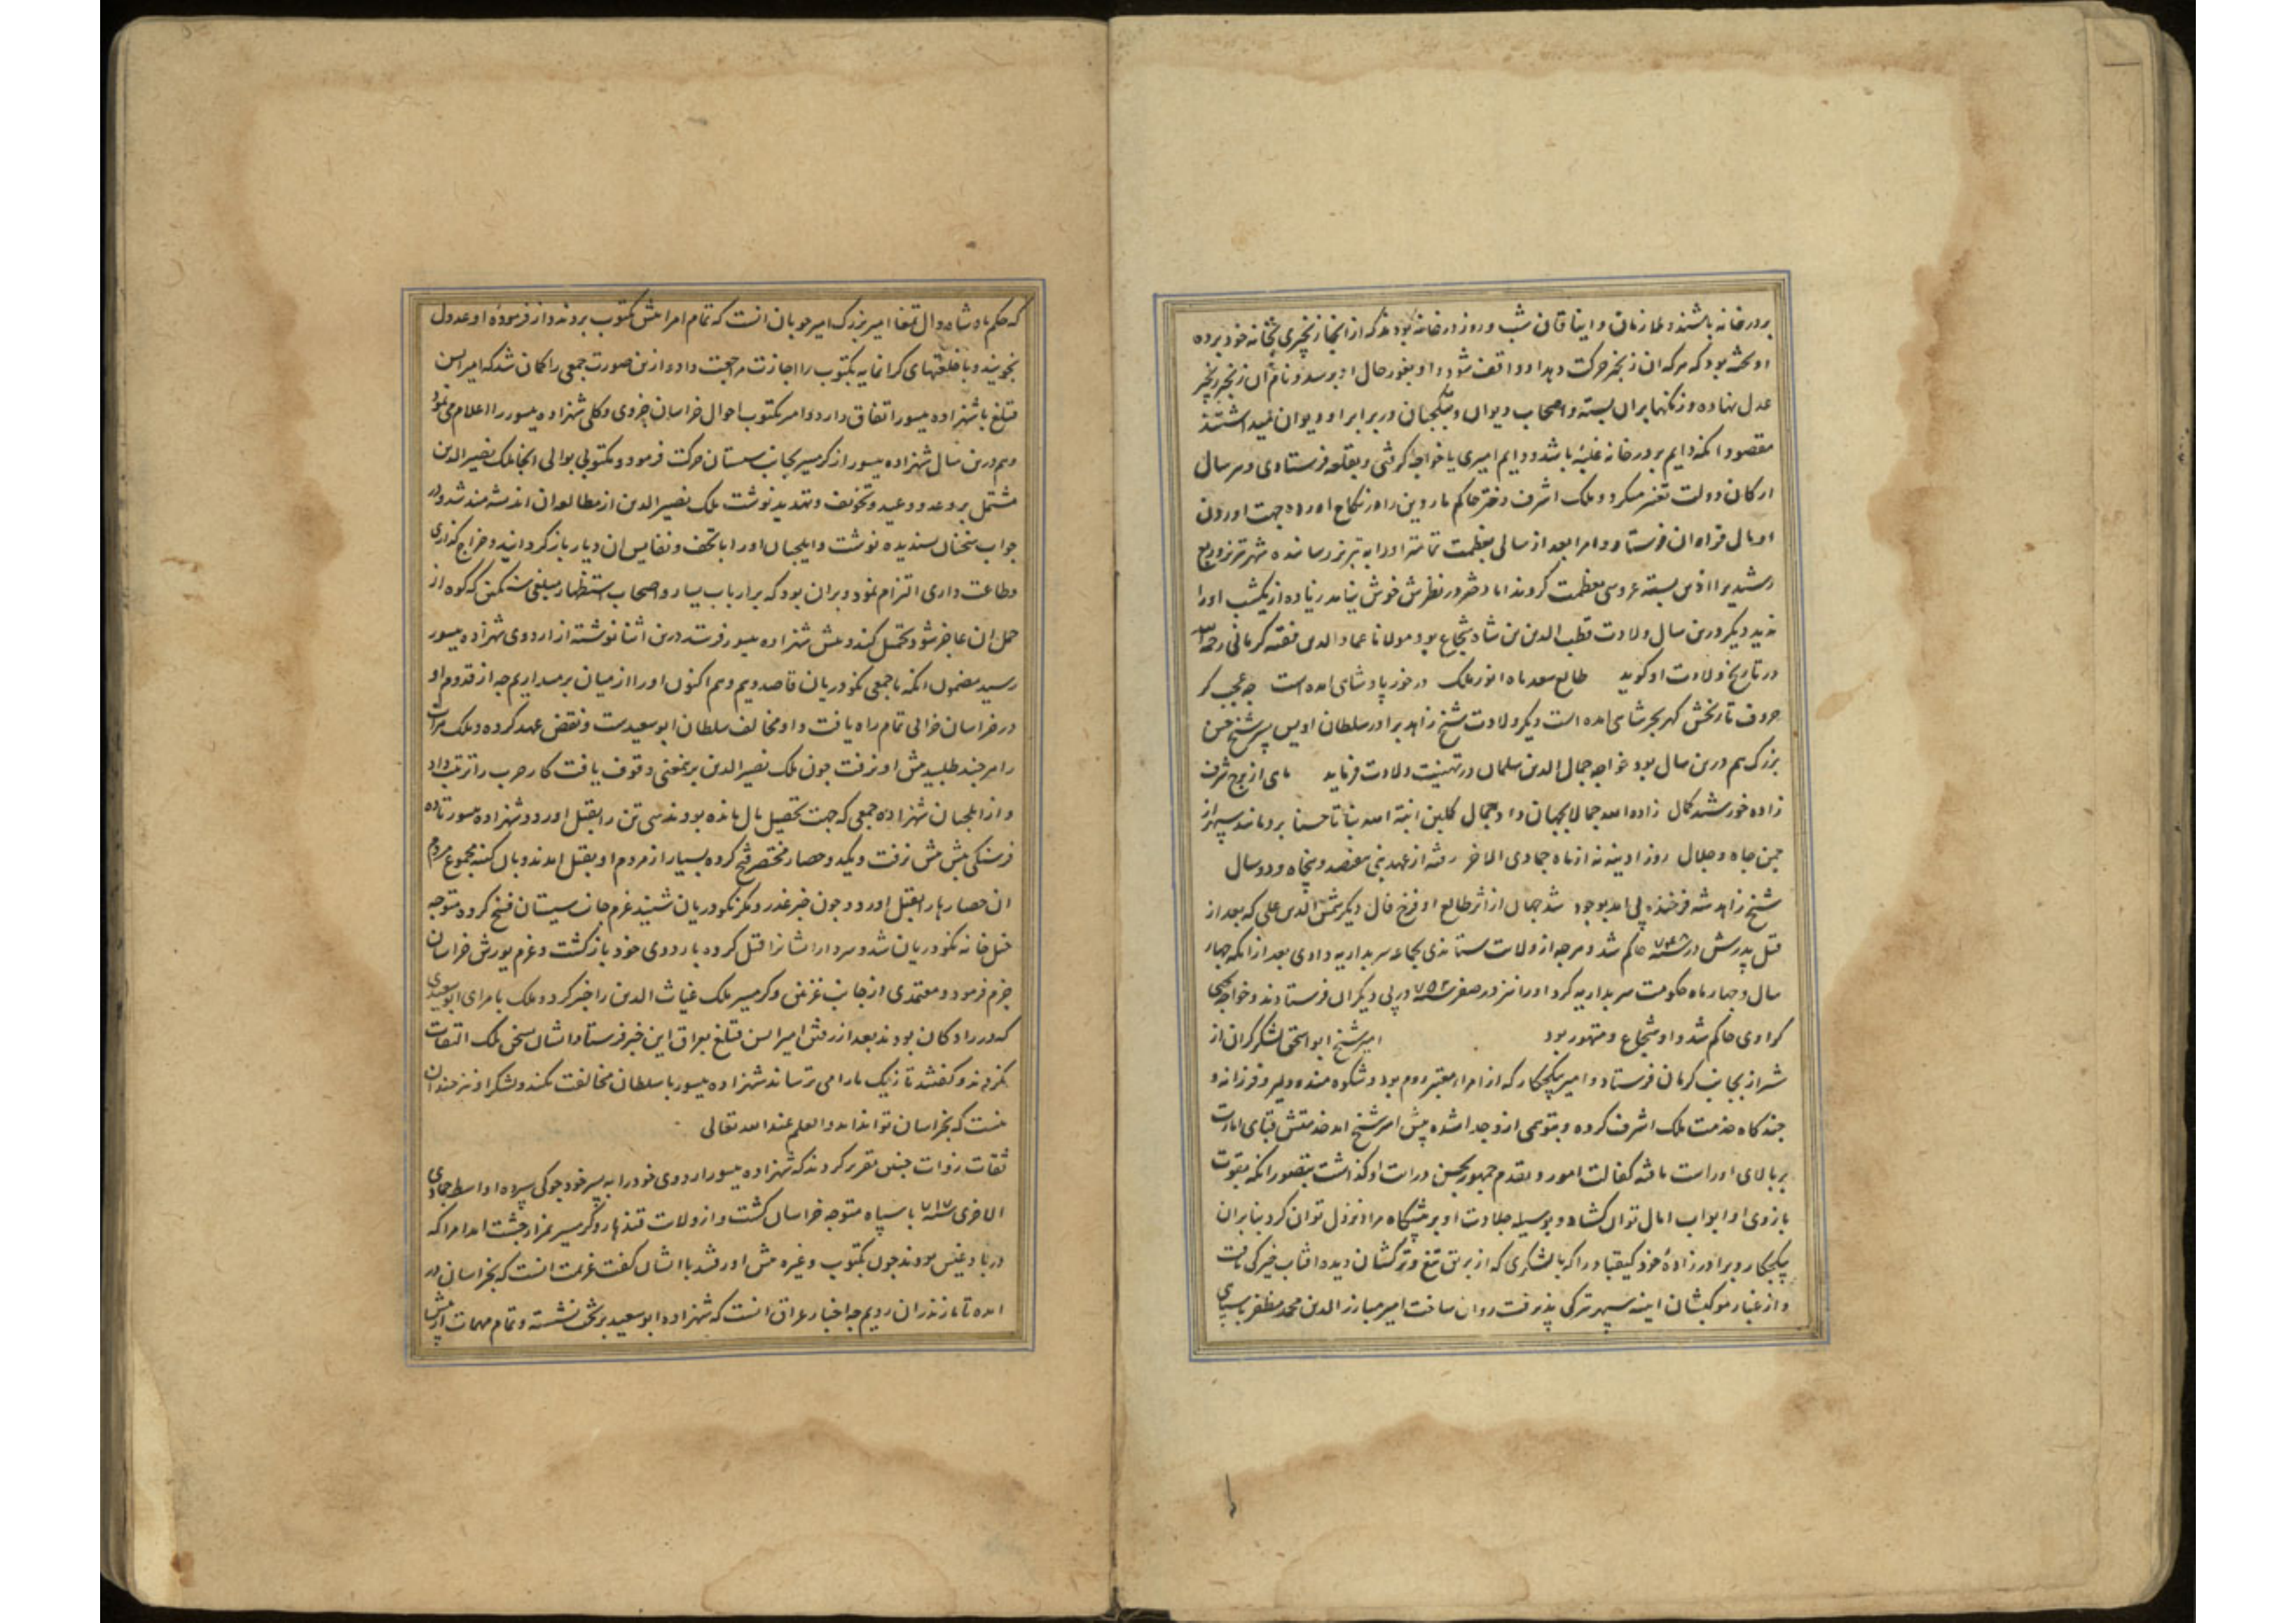 بر درخانه باشند و ملازمان و ایناقان شب و روز در خانه بودند که از انجا زنجیری بخانه خود برده
او بحثه بود که هرکه ان زنجیر حرکت دهد او واقف شود و او بغور حال او برسد و نام آن زنجیر زنجیر
عدل نهاده و زنگها بران بسته و اصحاب دیوان و بتکچیان در برابر او دیوان میداشتند
مقصود انکه دایم بر درخانه غلبه باشد و دایم امیری یا خواجه کرفتی و بقلعه فرستادی و هر سال
ارکان دولت تغیر میکرد و ملک اشرف دختر حاکم ماردین را در نکاح اورده جهت اوردن
او مالی فراوان فرستاد و امرا بعد از سالی بعظمت تمامتر او را به تبریز رسانیده شهر تبریز و ربع
رشیدی را اذین بسته عروسی بعظمت کردند اما دختر در نظرش خوش نیامد زیاده از یکشب او را
ندید دیکر درین سال ولادت قطب الدین بن شاه شجاع بود مولانا عماد الدین فقیه کرمانی رحمه الله
در تاریخ ولادت او کوید طالع سعد ماه انور ملک در خور پادشاهی امده است چه عجب کر
حروف تاریخش کهر بحر شاهی امده است دیکر ولادت شیخ زاهد برادر سلطان اویس پسر شیخ حسن
بزرک هم درین سال بود خواجه جمال الدین سلمان در تهنیت ولادت فرماید ماهی از برج شرف
زاده خورشید کمال زاده الله جمالا بجهان داد جمال کلبن انبته الله نباتا حسنا بر دمانید سپهر از
چمن جاه و جلال روز ادینه نه از ماه جمادی الاخر رفته از عهد نبی هفصد و پنجاه و دو سال
شیخ زاهد شه فرخنده پی امد بوجود شد جهان از اثر طالع او فرخ فال دیکر شمس الدین علی که بعد از
قتل پدرش در سنه ۷۴۸ حاکم شد و هرچه از ولات ستاندی بجماعه سربداریه دادی بعد از انکه چهار
سال و چهار ماه حکومت سربداریه کرد او را نیز در صفر سنه ۷۵۲ در پی دیکران فرستادند و خواجه یحیی
کراوی حاکم شد و او شجاع و متهور بود امیر شیخ ابو اسحق لشکر کران از
شیراز بجانب کرمان فرستاد و امیر بیکجکار که از امراء معتبر روم بود و شکوهمنده دلیر و فرزانه و
چند کاه خدمت ملک اشرف کرده و بتوهمی ازو جدا شده پیش امیر شیخ امد خدمتش قبای امارت
بر بالای او راست یافته کفالت امور و تقدم جمهور بحسن درایت او کذاشت بتصور انکه بقوت
بازوی او ابواب امال توان کشاد و بوسیله جلادت او بر پیشگاه مراد نزول توان کرد بنابران
بیکجکار و برادر زادهٔ خود کیقباد را که با لشکری که از برق تیغ و ترکشان دیده افتاب خیرکی یافت
و از غبار موکبشان اینه سپهر تیرکی پذیرفت روان ساخت امیر مبارز الدین محمد مظفر با سپاهی
که حکم پادشاه و ال تمغا امیر بزرک امیر چوبان انست که تمام امرا پیش بکتوب بروند و از فرموده او عدول
نجویند و با خلعتهای کرانمایه بکتوب را اجازت مراجعت داد و ازین صورت جمعی را کمان شد که امیر ایسن
قتلغ با شهزاده یسور اتفاق دارد و امیر بکتوب احوال خراسان جزوی و کلی شهزاده یسور را اعلام می نمود
و هم درین سال شهزاده یسور از کرمسیر بجانب سیستان حرکت فرمود و مکتوبی بوالی انجا ملک نصیر الدین
مشتمل بر وعد و وعید و تخویف و تهدید نوشت ملک نصیر الدین از مطالعه ان اندیشه مند شد و در
جواب سخنان پسندیده نوشت و ایلچیان او را با تحف و نفایس ان دیار باز کردانید و خراج کذاری
و طاعت داری التزام نمود و بران بود که بر ارباب یسار و اصحاب استظهار مبلغی سنکین که کوه از
حمل ان عاجز شود تحمیل کند و پیش شهزاده یسور فرستد درین اثنا نوشته از اردوی شهزاده یسور
رسید مضمون انکه ما جمعی نکودریان قاصدویم و هم اکنون او را از میان برمیداریم چه از قدوم او
در خراسان خرابی تمام راه یافت و او مخالف سلطان ابو سعیدست و نقض عهد کرده و ملک هرات
را هرچند طلبید پیش او نرفت چون ملک نصیر الدین برمعنی وقوف یافت کار حرب را ترتیب داد
و از ایلچیان شهزاده جمعی که جهت تحصیل مال مانده بودند سی تن را بقتل اورد و شهزاده یسور تا ده
فرسنکی پیش رفت و یک دو حصار مختصر فتح کرده بسیار از مردم او بقتل امدند و بال کینه مجموع مردم
ان حصارها را بقتل اورد و چون خبر غدر و مکر نکودریان شنید عزم جانب سیستان فسخ کرده متوجه
خیل خانه نکودریان شد و سرداران ایشانرا قتل کرده باردوی خود بازکشت و عزم یورش خراسان
جزم فرمود و معتمدی از جانب غزنین و کرمسیر ملک غیاث الدین را خبر کرد و ملک بامرای ابو سعیدی
که در رادکان بودند بعد از رفتن امیر ایسن قتلغ بعراق این خبر فرستاد ایشان بسخن ملک التفات
نکردند و کفتند تازیک ما را می ترساند شهزاده یسور با سلطان مخالفت نکند و لشکر او نیز چندان
نیست که بخراسان تواند امد و العلم عند الله تعالی
ثقات روات چنین تقریر کردند که شهزاده یسور اردوی خود را به پسر خود جوکی سپرده اواسط جمادی
الاخری سنه ۷۱۷ با سپاه متوجه خراسان کشت و از ولات قندهار و کرمسیر بمزار چشت امد امرا که
در بادغیس بودند چون بکتوب و غیره پیش او رفتند با ایشان کفت عزیمت انست که بخراسان در
امده تا مازندران رویم چه اخبار عراق انست که شهزاده ابو سعید بر تخت نشسته و تمام مهمات از پیش